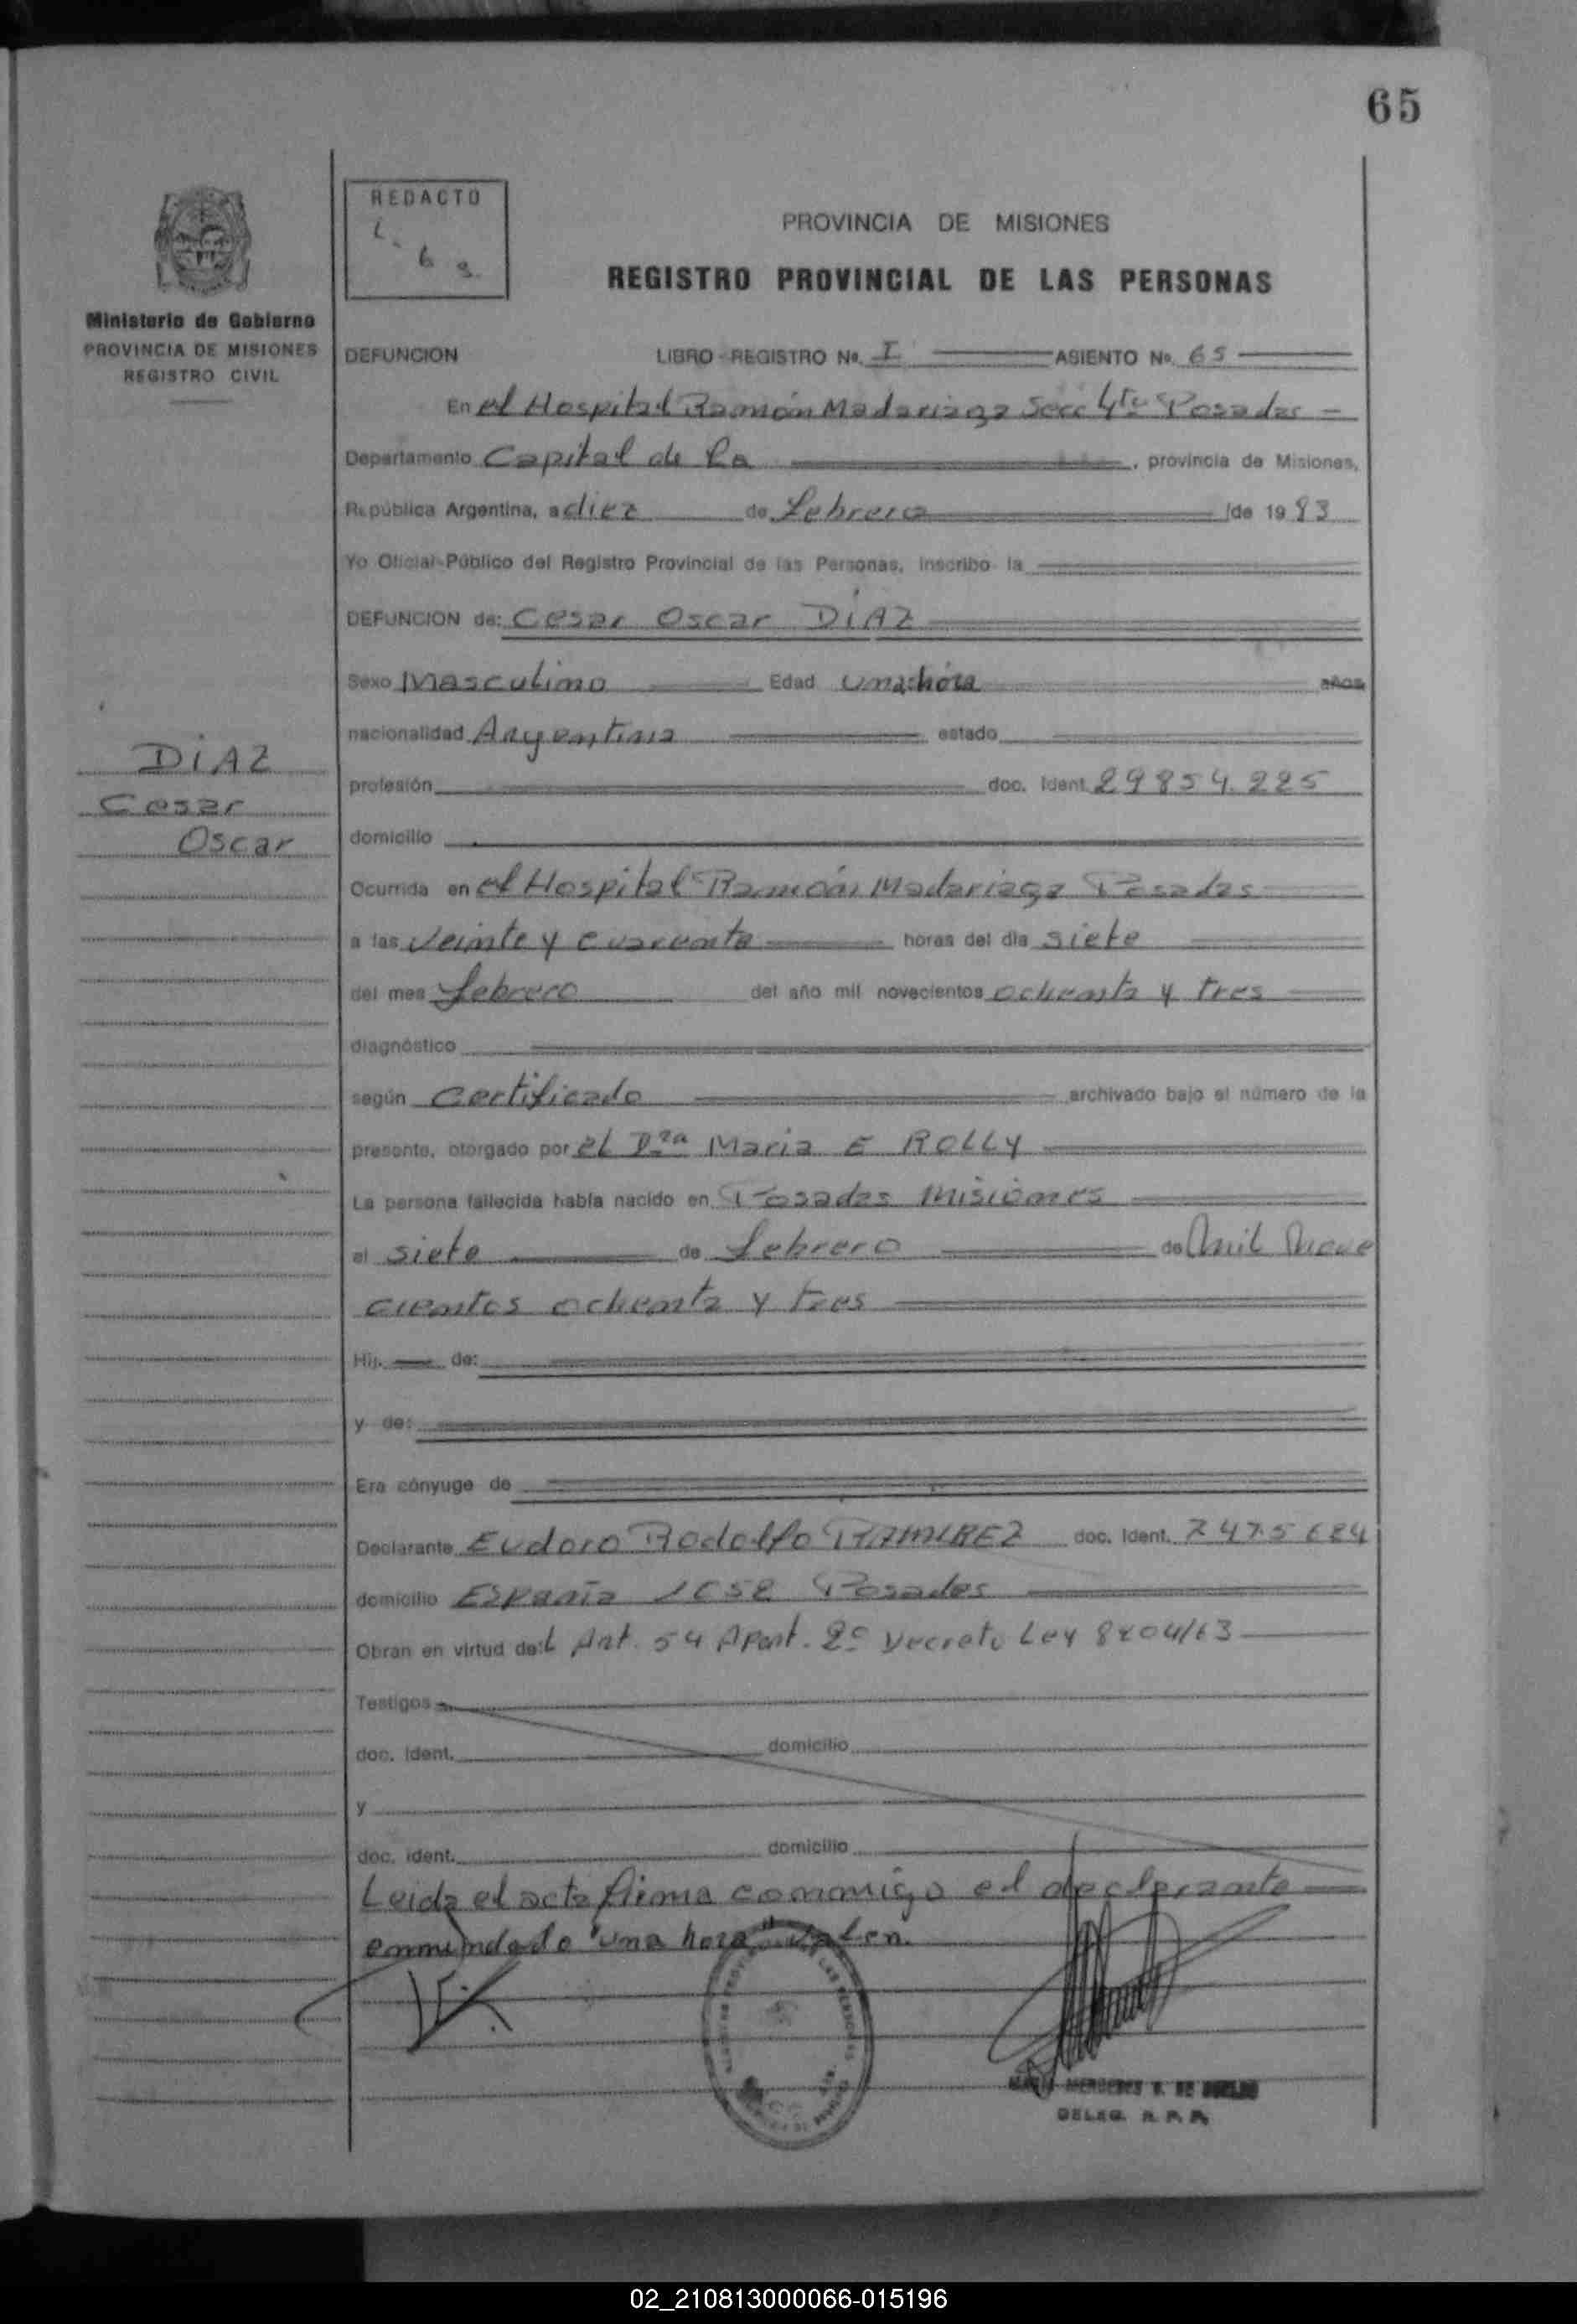 65
REDACTO
L. 6 9.
PROVINCIA DE MISIONES
REGISTRO PROVINCIAL DE LAS PERSONAS
Ministerio de Gobierno
PROVINCIA DE MISIONES
REGISTRO CIVIL
DEFUNCION LIBRO - REGISTRO No. I ASIENTO No. 65
En el Hospital Ramón Madariaga Secc 4ta Posadas -
Departamento Capital de la , provincia de Misiones,
República Argentina, a diez de Febrero de 1983
Yo Oficial Público del Registro Provincial de las Personas, inscribo la
DEFUNCION de: Cesar Oscar DiAZ
Sexo Masculino Edad una hora años
nacionalidad Argentina estado
DiAZ
Cesar
Oscar
profesión doc. Ident. 29854.225
domicilio
Ocurrida en el Hospital Ramón Madariaga Posadas
a las veinte y cuarenta horas del día siete
del mes febrero del año mil novecientos ochenta y tres
diagnóstico
según Certificado archivado bajo el número de la
presente, otorgado por el Dra Maria E ROLLY
La persona fallecida había nacido en Posadas Misiones
el siete de febrero de mil nove
cientos ochenta y tres
Hij. de:
y de:
Era cónyuge de
Declarante Eudoro Rodolfo RAMIREZ doc. Ident. 7475684
domicilio España 1658 Posadas
Obran en virtud de:l Art. 54 Apart. 2º Decreto Ley 8204/63
Testigos
doc. Ident. domicilio
y
doc. ident. domicilio
Leida el acta firma conmigo el declarante
enmendado "una hora" valen.
MERCEDES
DELEG. R. P. P.
02_210813000066-015196